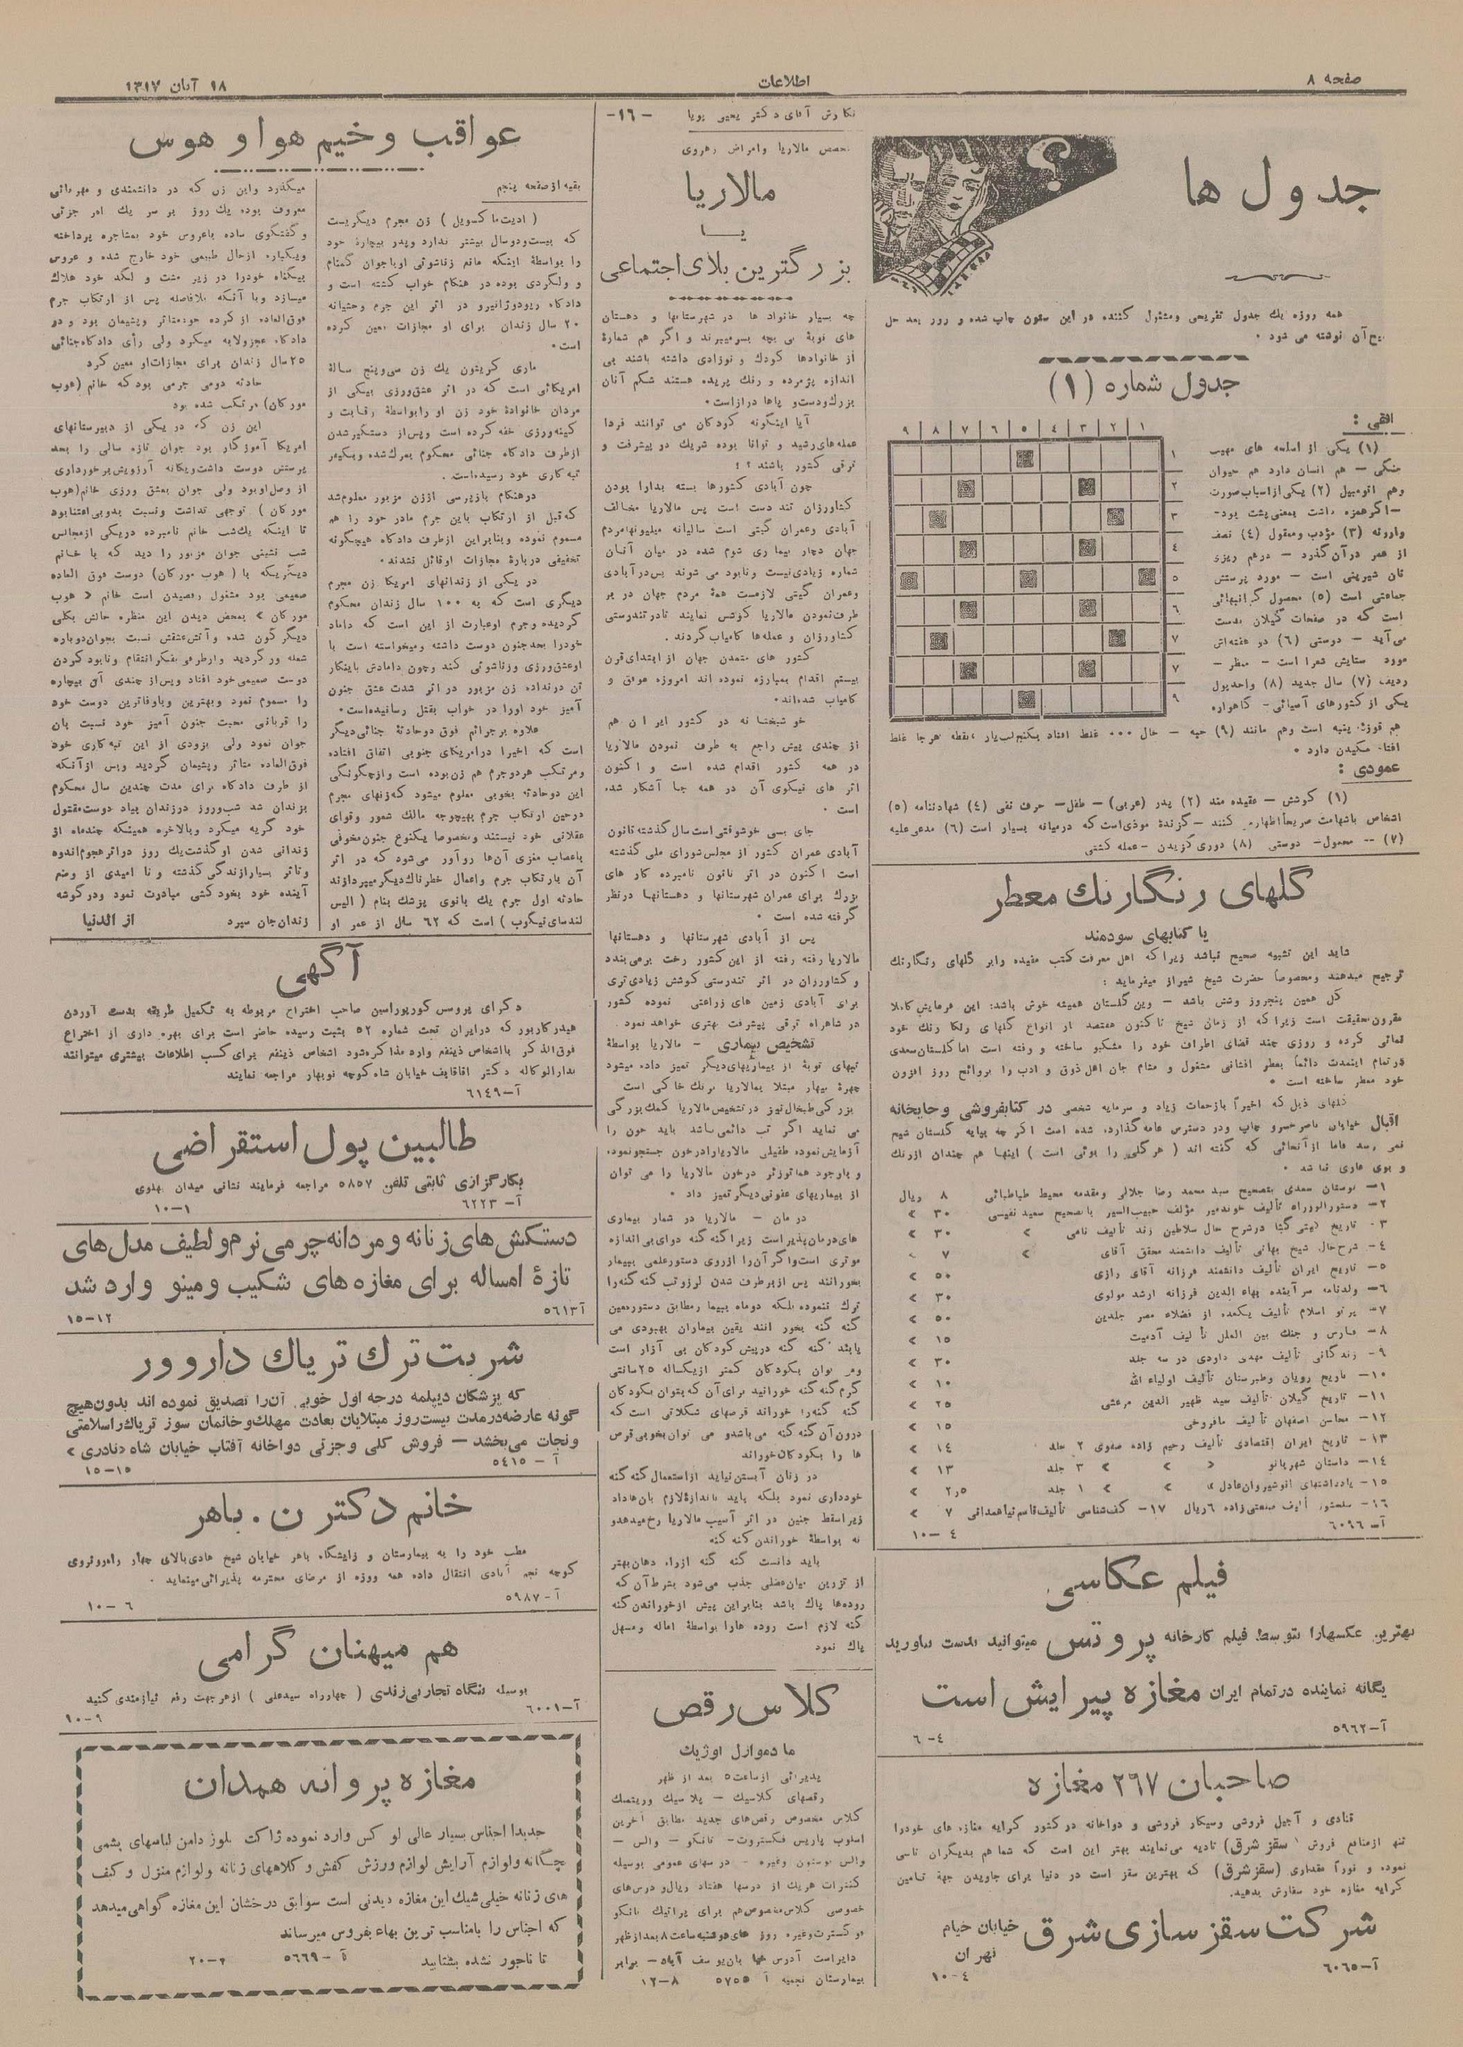 صفحه ۸
اطلاعات
۱۸ آبان ۱۳۱۷
جدول ها
همه روزه یك جدول تفریحی ومشغول کننده در این ستون چاپ شده و روز بعد حل
آن نوشته می شود .
جدول شماره (۱)
۱ ۲ ۳ ۴ ۵ ۶ ۷ ۸ ۹
۱
۲
۳
۴
۵
۶
۷
۷
۹
افقی :
(۱) یکی از اسلحه های مهیب
جنگی – هم انسان دارد هم حیوان
وهم اتومبیل (۲) یکی از اسباب صورت
–اگر همزه داشت بمعنی پشت بود–
وارونه (۳) مؤدب ومعقول (۴) نصف
از عمر در آن گذرد – درهم ریزی
نان شیرینی است – مورد پرستش
جماعتی است (۵) محصول گرانبهائی
است که در صفحات گیلان بدست
می‌آید – دوستی (۶) در هفته‌اش
مورد ستایش شعرا است – منظر –
ردیف (۷) سال جدید (۸) واحد پول
یکی از کشورهای آسیائی– گاهواره
هم قوزه پنبه است وهم مانند (۹) حبه – خال
عمودی :
(۱) کوشش – عقیده مند (۲) پدر (عربی)– طفل– حرف نفی (۴) شهادتنامه (۵)
اشخاص باشهامت صریحاً اظهار می کنند –گزندهٔ موذی است که درمیانه بسیار است (۶) مدعی علیه
(۷) –– معمول– دوستی (۸) دوری گزیدن –عمله کشتی
گلهای رنگارنك معطر
یا کتابهای سودمند
شاید این تشبیه صحیح نباشد زیرا که اهل معرفت کتب مفیده را بر گلهای رنگارنك
ترجیح میدهند ومخصوصاً حضرت شیخ شیراز میفرماید :
گل همین پنجروز وشش باشد – وین گلستان همیشه خوش باشد: این فرمایش کاملا
مقرون بحقیقت است زیرا که از زمان شیخ تاکنون هفتصد از انواع گلهای رنگا رنك خود
نمائی کرده و روزی چند فضای اطراف خود را مشکبو ساخته و رفته است اما گلستان سعدی
در تمام اینمدت دائماً بعطر افشانی مشغول و مشام جان اهل ذوق و ادب را بروائح روز افزون
خود معطر ساخته است .
گلهای ذیل که اخیراً بازحمات زیاد و سرمایه شخصی در کتابفروشی و چاپخانه
اقبال خیابان ناصر خسرو چاپ ودر دسترس عامه گذارده شده است اگر چه بپایه گلستان شیخ
نمی رسد اما از آنجائی که گفته اند ( هر گلی را بوئی است ) اینها هم چندان از رنك
و بوی عاری نباشد .
۱– بوستان سعدی بتصحیح سید محمد رضا جلالی ومقدمه محیط طباطبائی ۸ ریال
۲– دستورالوزراء تألیف خوندمیر مؤلف حبیب‌السیر باتصحیح سعید نفیسی ۳۰ »
۳– تاریخ گیتی گشا درشرح حال سلاطین زند تألیف نامی » ۳۰ »
۴– شرح حال شیخ بهائی تألیف دانشمند محقق آقای » ۷ »
۵– تاریخ ایران تألیف دانشمند فرزانه آقای رازی ۵۰ »
۶– ولدنامه سر آینده بهاء الدین فرزانه ارشد مولوی ۳۰ »
۷– پرتو اسلام تألیف یکعده از فضلاء مصر جلدین ۵۰ »
۸– فارس و جنك بین الملل تألیف آدمیت ۱۵ »
۹– زندگانی تألیف مهدی داودی در سه جلد ۳۰ »
۱۰– تاریخ رویان وطبرستان تألیف اولیاء الله ۱۰ »
۱۱– تاریخ گیلان تألیف سید ظهیر الدین مرعشی ۲۵ »
۱۲– محاسن اصفهان تألیف مافروخی ۱۵ »
۱۳– تاریخ ایران اقتصادی تألیف رحیم زاده صفوی ۲ جلد ۱۴ »
۱۴– داستان شهربانو » » ۳ جلد ۱۳ »
۱۵– یادداشتهای انوشیروان عادل » » ۱ جلد ۲٫۵ »
۱۶– تألیف صنعتی زاده ۶ ریال ۱۷– کف شناسی تألیف قاسم نیا همدانی ۷ »
آ–۶۰۹۶
۴ –۱۰
فیلم عکاسی
بهترین عکسهارا بتوسط فیلم کارخانه پروتس میتوانید بدست بیاورید
یگانه نماینده در تمام ایران مغازه پیرایش است
آ–۵۹۶۲
۴– ۶
صاحبان ۲۶۷ مغازه
قنادی و آجیل فروشی وسیگار فروشی و دواخانه در کشور کرایه مغازه های خودرا
تنها از منافع فروش (سقز شرق) تادیه می‌نمایند بهتر این است که شما هم بدیگران تاسی
نموده و فوراً مقداری (سقز شرق) که بهترین سقز است در دنیا برای جاویدن جهة تامین
کرایه مغازه خود سفارش بدهید.
شرکت سقز سازی شرق خیابان خیام
تهران
آ–۶۰۶۵
۴–۱۰
نگارش آقای دکتر یحیی پویا –۱۶–
متخصص مالاریا وامراض زهروی
مالاریا
یا
بزرگترین بلای اجتماعی
چه بسیار خانواد ها در شهرستانها و دهستان
های نوبهٔ بی بچه بسر میبرند و اگر هم شمارهٔ
از خانوادها کودك و نوزادی داشته باشند بی
اندازه پژمرده و رنك پریده هستند شکم آنان
بزرك ودست و پاها دراز است.
آیا اینگونه کودکان می توانند فردا
عمله‌های رشید و توانا بوده شریك در پیشرفت و
ترقی کشور باشند ؟ !
چون آبادی کشورها بسته بدارا بودن
کشاورزان تندرست است پس مالاریا مخالف
آبادی وعمران گیتی است سالیانه میلیونها مردم
جهان دچار بیماری شوم شده در میان آنان
شماره زیادی نیست ونابود می شوند پس در آبادی
وعمران گیتی لازمست همهٔ مردم جهان در بر
طرف نمودن مالاریا کوشش نمایند تادر تندرستی
کشاورزان و عمله‌ها کامیاب گردند .
کشور های متمدن جهان از ابتدای قرن
بیستم اقدام بمبارزه نموده اند امروزه موفق و
کامیاب شده‌اند .
خوشبختانه در کشور ایران هم
از چندی پیش راجع به طرف نمودن مالاریا
در همه کشور اقدام شده است و اکنون
اثر های نیکوی آن در همه جا آشکار شده
است .
جای بسی خوشوقتی است سال گذشته قانون
آبادی عمران کشور از مجلس شورای ملی گذشته
است اکنون در اثر قانون نامبرده کار های
بزرك برای عمران شهرستانها و دهستانها در نظر
گرفته شده است .
پس از آبادی شهرستانها و دهستانها
مالاریا رفته رفته از این کشور رخت برمی‌بندد
و کشاورزان در اثر تندرستی کوشش زیادی‌تری
برای آبادی زمین های زراعتی نموده کشور
در شاهراه ترقی پیشرفت بهتری خواهد نمود .
تشخیص بیماری – مالاریا بواسطهٔ
تبهای نوبهٔ از بیماریهای دیگر تمیز داده میشود
چهرهٔ بیمار مبتلا بمالاریا برنك خاکی است
بزرگی طحال نیز در تشخیص مالاریا کمك بزرگی
می نماید اگر تب دائمی باشد باید خون را
آزمایش نموده طفیلی مالاریا را در خون جستجو نموده،
و با وجود هماتوزئر در خون مالاریا را می توان
از بیماریهای عفونی دیگر تمیز داد .
درمان – مالاریا در شمار بیماری
های درمان پذیر است زیرا گنه گنه دوای بی‌اندازه
موثری است واگر آن را از روی دستور علمی ببیمار
بخورانند پس از برطرف شدن لرز و تب گنه گنه را
ترك ننموده بلکه دوماه ببیمار مطابق دستور معین
گنه گنه بخورانند یقین بیماران بهبودی می
یابند گنه گنه در پیش کودکان بی آزار است
ومی توان بکودکان کمتر از یکساله ۲۵ سانتی
گرم گنه گنه خورانید برای آن که بتوان بکودکان
گنه گنه را خوراند قرصهای شکلاتی است که
درون آن گنه گنه می‌باشد و می توان بخوبی قرص
ها را بکودکان خوراند
در زنان آبستن نباید از استعمال گنه گنه
خودداری نمود بلکه باید باندازهٔ لازم بان‌ها داد
زیرا سقط جنین در اثر آسیب مالاریا رخ میدهد و
نه بواسطهٔ خوراندن گنه گنه
باید دانست گنه گنه از راه دهان بهتر
از تزریق میان عضلی جذب می‌شود بشرط آن که
روده‌ها پاك باشد بنابراین پیش از خوراندن گنه
گنه لازم است روده هارا بواسطهٔ اماله ومسهل
پاك نمود
کلاس رقص
مادموازل اوژیك
پذیرائی از ساعت ۵ بعد از ظهر
رقصهای کلاسیك – پلاسیك وریتمیك
کلاس مخصوص رقص‌های جدید مطابق آخرین
اسلوب پاریس فکستروت– تانگو – والس –
والس بوستون وغیره – درسهای عمومی بوسیله
کنترات هریك از درسها هفتاد ریال و درس‌های
خصوصی کلاس مخصوص هم برای پراتیك تانگو
فوکسترت وغیره روز های دوشنبه ساعت ۸ بعد از ظهر
دایر است آدرس خیابان یوسف آباد– برابر
بیمارستان نجمیه آ ۵۷۵۵ ۸–۱۲
عواقب وخیم هوا و هوس
بقیه از صفحه پنجم
( ادیت ماکسویل ) زن مجرم دیگریست
که بیست ودو سال بیشتر ندارد وپدر بیچاره خود
را بواسطهٔ اینکه مانع زناشوئی او باجوان گمنام
و ولگردی بوده در هنگام خواب کشته است و
دادگاه ریودوژانیرو در اثر این جرم وحشیانه
۲۰ سال زندان برای او مجازات معین کرده
است .
ماری کریتون یك زن سی‌وپنج سالهٔ
امریکائی است که در اثر عشق‌ورزی بیکی از
مردان خانوادهٔ خود زن او را بواسطهٔ رقابت و
کینه‌ورزی خفه کرده است وپس از دستگیر شدن
از طرف دادگاه جنائی محکوم بمرك شده و بکیفر
تبه کاری خود رسیده است.
در هنگام بازپرسی از زن مزبور معلوم شد
که قبل از ارتکاب باین جرم مادر خود را هم
مسموم نموده وبنابراین از طرف دادگاه هیچگونه
تخفیفی دربارهٔ مجازات او قائل نشدند .
در یکی از زندانهای امریکا زن مجرم
دیگری است که به ۱۰۰ سال زندان محکوم
گردیده وجرم او عبارت از این است که داماد
خودرا بحد جنون دوست داشته ومیخواسته است با
او عشق ورزی وزناشوئی کند وچون دامادش باینکار
تن درنداده زن مزبور در اثر شدت عشق جنون
آمیز خود اورا در خواب بقتل رسانیده است.
علاوه بر جرائم فوق دو حادثهٔ جنائی دیگر
است که اخیرا در امریکای جنوبی اتفاق افتاده
ومرتکب هردو جرم هم زن بوده است وازچگونگی
این دوحادثه بخوبی معلوم میشود که زنهای مجرم
درحین ارتکاب جرم بهیچوجه مالك شعور وقوای
عقلانی خود نیستند ومخصوصا یکنوع جنون مخوفی
باعصاب مغزی آن‌ها روآور می‌شود که در اثر
آن بارتکاب جرم واعمال خطرناك دیگر میپردازند
حادثه اول جرم یك بانوی پزشك بنام ( الیس
لندسای نیگوب ) است که ۶۲ سال از عمر او
میگذرد واین زن که در دانشمندی و مهربانی
معروف بوده یك روز بر سر یك امر جزئی
و گفتگوی ساده باعروس خود بمشاجره پرداخته
ویکباره از حال طبیعی خود خارج شده و عروس
بیگناه خودرا در زیر مشت و لگد خود هلاك
میسازد وبا آنکه بلافاصله پس از ارتکاب جرم
فوق‌العاده از کرده خود متاثر وپشیمان بود و در
دادگاه عجزولابه میکرد ولی رأی دادگاه جنائی
۲۵ سال زندان برای مجازات او معین کرد
حادثه دومی جرمی بود که خانم (هوب
مورکان) مرتکب شده بود
این زن که در یکی از دبیرستانهای
امریکا آموزگار بود جوان تازه سالی را بحد
پرستش دوست داشت ویگانه آرزویش برخورداری
از وصل او بود ولی جوان بعشق ورزی خانم (هوب
مورکان ) توجهی نداشت ونسبت بدو بی‌اعتنا بود
تا اینکه یك‌شب خانم نامبرده در یکی از مجالس
شب نشینی جوان مزبور را دید که با خانم
دیگریکه با ( هوب مورکان) دوست فوق العاده
صمیمی بود مشغول رقصیدن است خانم « هوب
مورکان » بمحض دیدن این منظره حالش بکلی
دیگر گون شده وآتش عشقش نسبت بجوان دوباره
شعله ور گردید و از طرفی بفکر انتقام ونابود کردن
دوست صمیمی خود افتاد وپس از چندی آن بیچاره
را مسموم نمود وبهترین وباوفاترین دوست خود
را قربانی محبت جنون آمیز خود نسبت بان
جوان نمود ولی بزودی از این تبه کاری خود
فوق‌العاده متاثر وپشیمان گردید وپس از آنکه
از طرف دادگاه برای مدت چندین سال محکوم
بزندان شد شب‌وروز درزندان بیاد دوست مقتول
خود گریه میکرد وبالاخره همینکه چندماه از
زندانی شدن او گذشت یك روز دراثر هجوم اندوه
وتاثر بسیار از زندگی گذشته و نا امیدی از وضع
آینده خود بخود کشی مبادرت نمود ودر گوشه
زندان جان سپرد از الدنیا
آگهی
دکرای پروسس کورپوراسین صاحب اختراع مربوطه به تکمیل طریقه بدست آوردن
هیدرکاربور که درایران تحت شماره ۵۲ بثبت رسیده حاضر است برای بهره داری از اختراع
فوق‌الذکر بااشخاص ذینفع وارد مذاکره شود اشخاص ذینفع برای کسب اطلاعات بیشتری میتوانند
بدارالوکاله دکتر آقایف خیابان شاه کوچه نوبهار مراجعه نمایند
آ–۶۱۴۹
طالبین پول استقراضی
بکارگزاری ثابتی تلفن ۵۸۵۷ مراجعه فرمایند نشانی میدان پهلوی
آ– ۶۲۲۳
۱–۱۰
دستکش‌های زنانه و مردانه چرمی نرم و لطیف مدل‌های
تازهٔ امساله برای مغازه های شکیب و مینو وارد شد
آ۵۶۱۳
۱۲–۱۵
شربت ترك تریاك داروور
که پزشکان دیپلمه درجه اول خوبی آن‌را تصدیق نموده اند بدون‌هیچ
گونه عارضه درمدت بیست‌روز مبتلایان بعادت مهلك و خانمان سوز تریاك را سلامتی
و نجات می‌بخشد – فروش کلی و جزئی دواخانه آفتاب خیابان شاه «نادری»
آ – ۵۴۱۵
۱۵–۱۵
خانم دکتر ن . باهر
مطب خود را به بیمارستان و زایشگاه باهر خیابان شیخ هادی بالای چهار راه
کوچه نجم آبادی انتقال داده همه روزه از مرضای محترمه پذیرائی مینماید .
آ–۵۹۸۷
۶ –۱۰
هم میهنان گرامی
بوسیله بنگاه تجارتی زندی ( چهارراه سیدعلی ) از هر جهت رفع نیازمندی کنید
آ–۶۰۰۱
۹–۱۰
مغازه پروانه همدان
جدیدا اجناس بسیار عالی لو کس وارد نموده ژاکت بلوز دامن لباسهای پشمی
بچگانه و لوازم آرایش لوازم ورزش کفش و کلاههای زنانه ولوازم منزل و کیف
های زنانه خیلی شیك این مغازه دیدنی است سوابق درخشان این مغازه گواهی میدهد
که اجناس را بامناسب ترین بهاء بفروش میرساند
تا ناجور نشده بشتابید آ – ۵۶۶۹
۲۰–